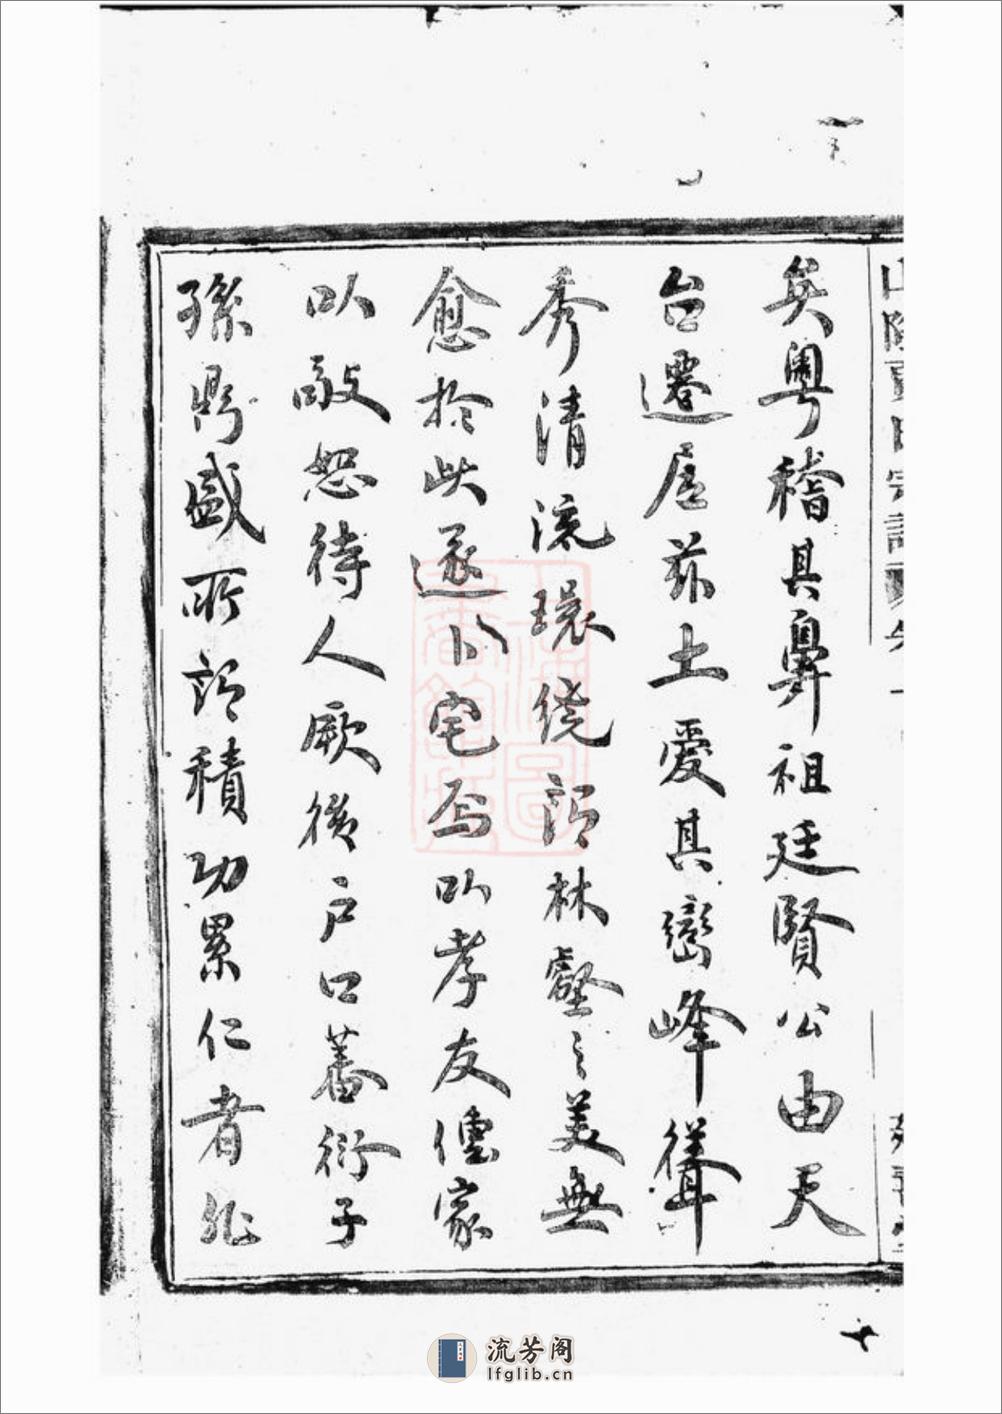 矣粤稽其鼻祖廷賢公由天
台遷居兹土愛其巒峰聳
秀清流環繞謂林壑之美無
愈於此遂卜宅焉以孝友傳家
以敬恕待人厥後户口蕃衍子
孫鼎盛所謂積功累仁者非
流芳阁
lfglib.cn